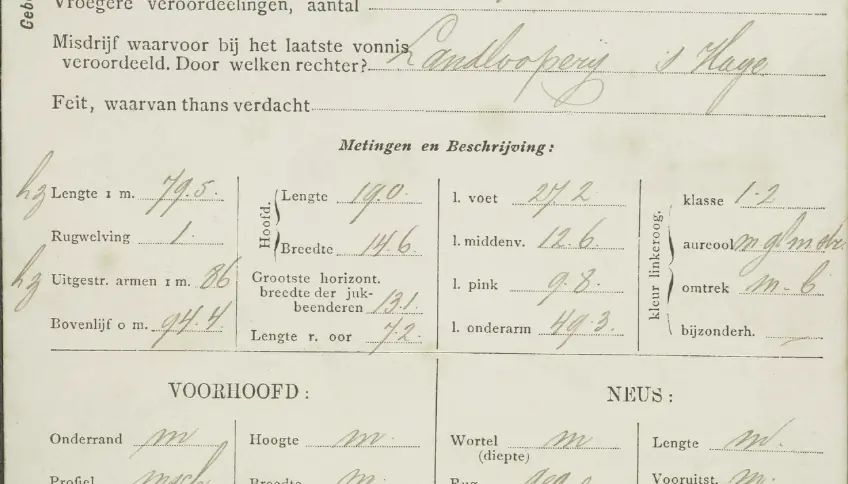 Vroegere veroordeelingen, aantal
Misdrijf waarvoor bij het laatste vonnis
veroordeeld. Door welken rechter? Landlooperij 's Hage
Feit, waarvan thans verdacht
Metingen en Beschrijving:
hz Lengte 1 m. 79.5. Hoofd. Lengte 19.0 l. voet 27.2 kleur linkeroog. klasse 1-2
Rugwelving 1. Breedte 14.6 l. middenv. 12.6 aureool m gl m
hz Uitgestr. armen 1 m. 86 Grootste horizont. breedte der juk-beenderen 13.1. l. pink 9.8. omtrek m-b
Bovenlijf o m. 94.4. Lengte r. oor 7.2. l. onderarm 49.3. bijzonderh.
VOORHOOFD: NEUS:
Onderrand m Hoogte m. Wortel (diepte) m Lengte m.
Profiel Breedte m. Rug Vooruitst. m.